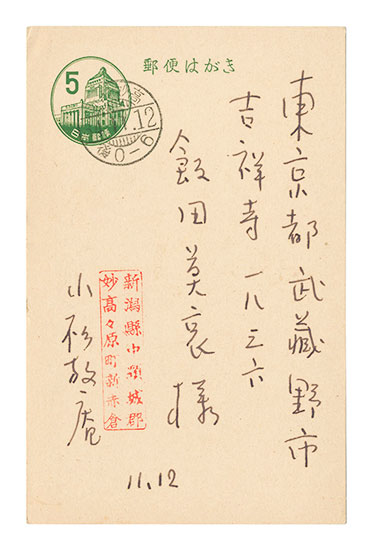 郵便はがき
5
日本郵便
.12
後0-6
東京都武蔵野市
吉祥寺一八三六
飯田莫哀様
新潟縣中頸城郡
妙高々原町新赤倉
小杉放庵
11.12